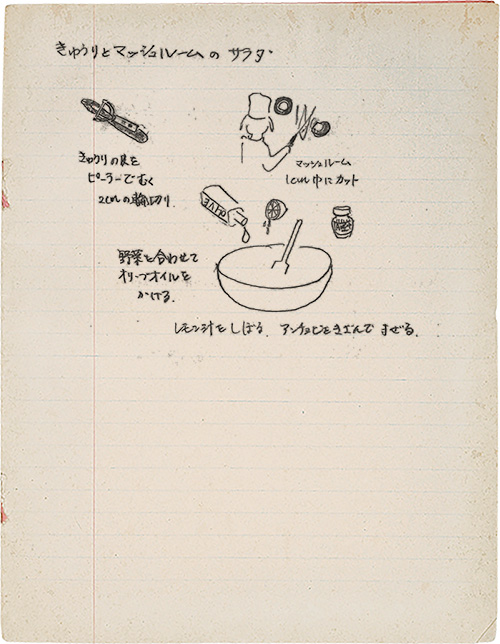 きゅうりとマッシュルームの サラダ
きゅうりの皮を
ピーラーでむく
2cmの輪切り
マッシュルーム
1cm巾にカット
OLIVE
野菜を合わせて
オリーブオイルを
かける.
レモン汁をしぼる. アンチョビをきざんで まぜる.